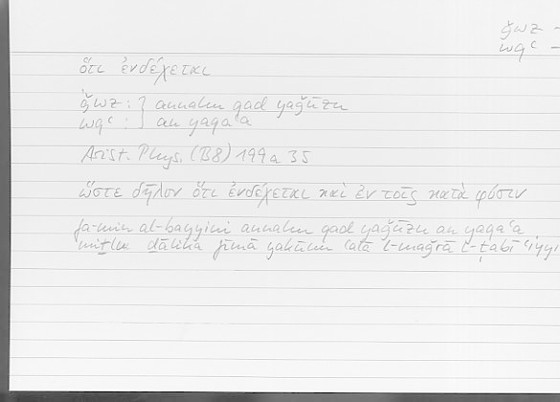 ǧwz –
wqʿ –
ὅτι ἐνδέχεται
ǧwz : } annahu qad yaǧūzu
wqʿ : } an yaqaʿa
Arist. Phys. (B8) 199a35
ὥστε δῆλον ὅτι ἐνδέχεται καὶ ἐν τοῖς κατὰ φύσιν
fa-min al-bayyini annahu qad yaǧūzu an yaqaʿa
miṯlu ḏālika fīmā yakūnu ʿalā l-maǧrā ṭ-ṭabīʿiyyi